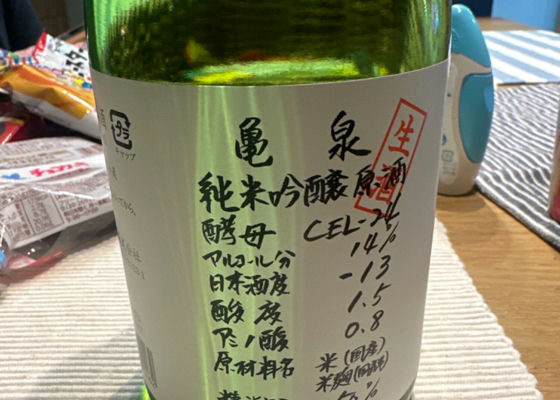 亀泉
生酒
純米吟醸原酒
酵母 CEL-24
アルコール分 14%
日本酒度 -13
酸度 1.5
アミノ酸 0.8
原材料名 米(国産)
米麹(国産米)
キャップ